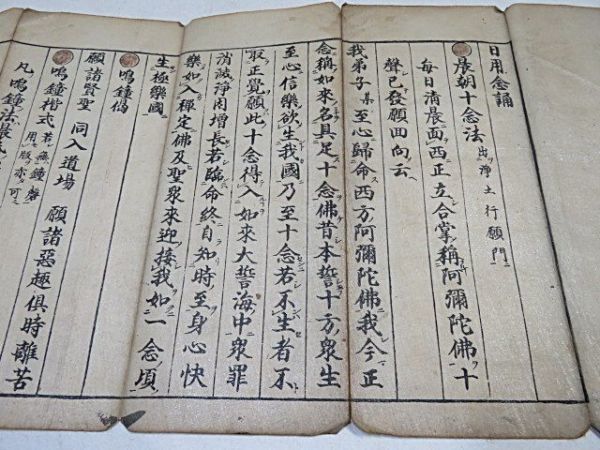 日用念誦
晨朝十念法 出淨土行願門
每日清晨面西正立合掌稱阿彌陀佛十
聲已發願回向云
我弟子某至心歸命西方阿彌陀佛我今正
念稱如來名具足十念佛昔本誓十方眾生
至心信樂欲生我國乃至十念若不生者不
取正覺願此十念得入如來大誓海中眾罪
消滅淨因增長若臨命終自知時至身心快
樂如入禪定佛及聖眾來迎接我如一念頃
生極樂國
鳴鐘偈
願諸賢聖 同入道場 願諸惡趣俱時離苦
鳴鐘楷式 若無鐘磬用版亦可
凡鳴鐘法晨